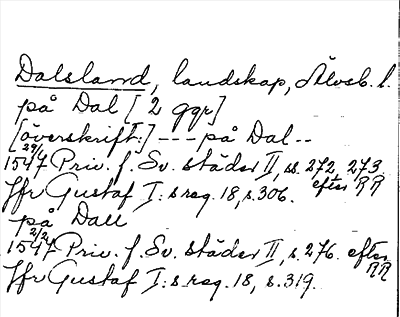 Dalsland, landskap, Älvsb. l.
på Dal [2 ggr]
[överskrift:] --- på Dal --
29/1 1547 Priv. f. Sv. städer II, ss. 272, 273 efter RR
Jfr Gustaf I:s reg. 18, s. 306.
på Dall
2/2 1547 Priv. f. Sv. städer II, s. 276. efter RR
Jfr Gustaf I:s reg. 18, s. 319.